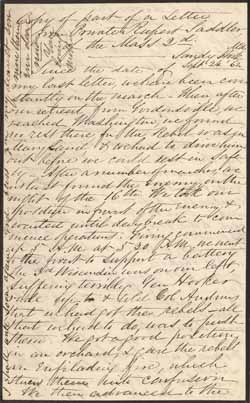 Copy of part of a Letter
from Private Rupert Saddler
the Mass 2nd
Sandy Hook
Sept 26 62
Since the date of
my last letter, we have been con
stantly on the march. When after
our retreat from Gordonsville, we
reached Washington, we found
no rest there for the Rebel was in
Maryland & we had to drive him
out before we could rest in safe
ty. After a number of marches, we
found the Enemy on the
night of the 16th. We took a
position in front of the Enemy, &
waited until day break to com
mence operations. Firing commenced
at 5 A.M. at 5 30 A.M. we went
to the front to support a battery
the 3rd Wisconsin was on our left,
suffering terribly. Gen Hooker
rode by, & told Col Andrews
that we had got the rebels - all
that we had to do, was to push
them. We got a good position
in an orchard, & gave the rebels
an Enfilading fire, which
threw them into confusion
We then advanced to the